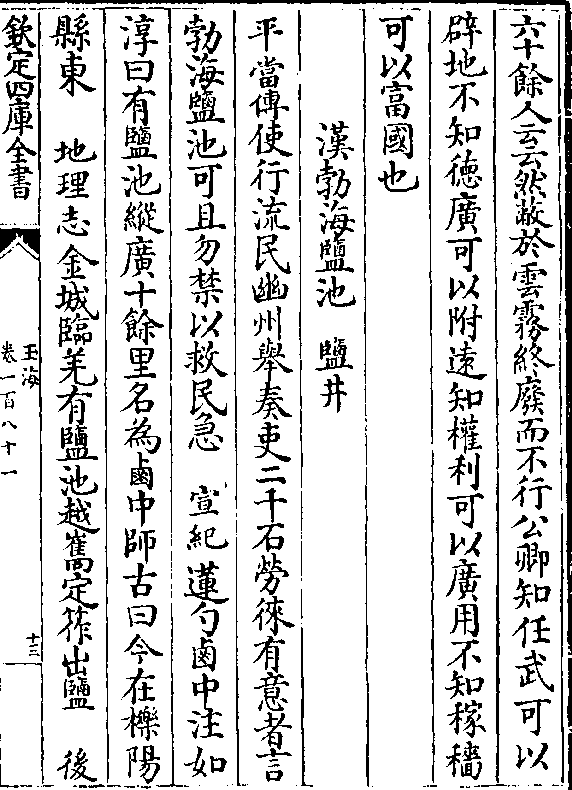 六十餘人云云然蔽於雲霧終廢而不行公卿知任武可以
辟地不知德廣可以附遠知權利可以廣用不知稼穡
可以富國也
漢勃海鹽池　鹽井
平當傳使行流民幽州舉奏吏二千石勞徠有意者言
勃海鹽池可且勿禁以救民急　宣紀蓮勺鹵中注如
淳曰有鹽池縱廣十餘里名為鹵中師古曰今在櫟陽
縣東　地理志金城臨羌有鹽池越巂定筰出鹽　後
欽定四庫全書
玉海
卷一百八十一
十三